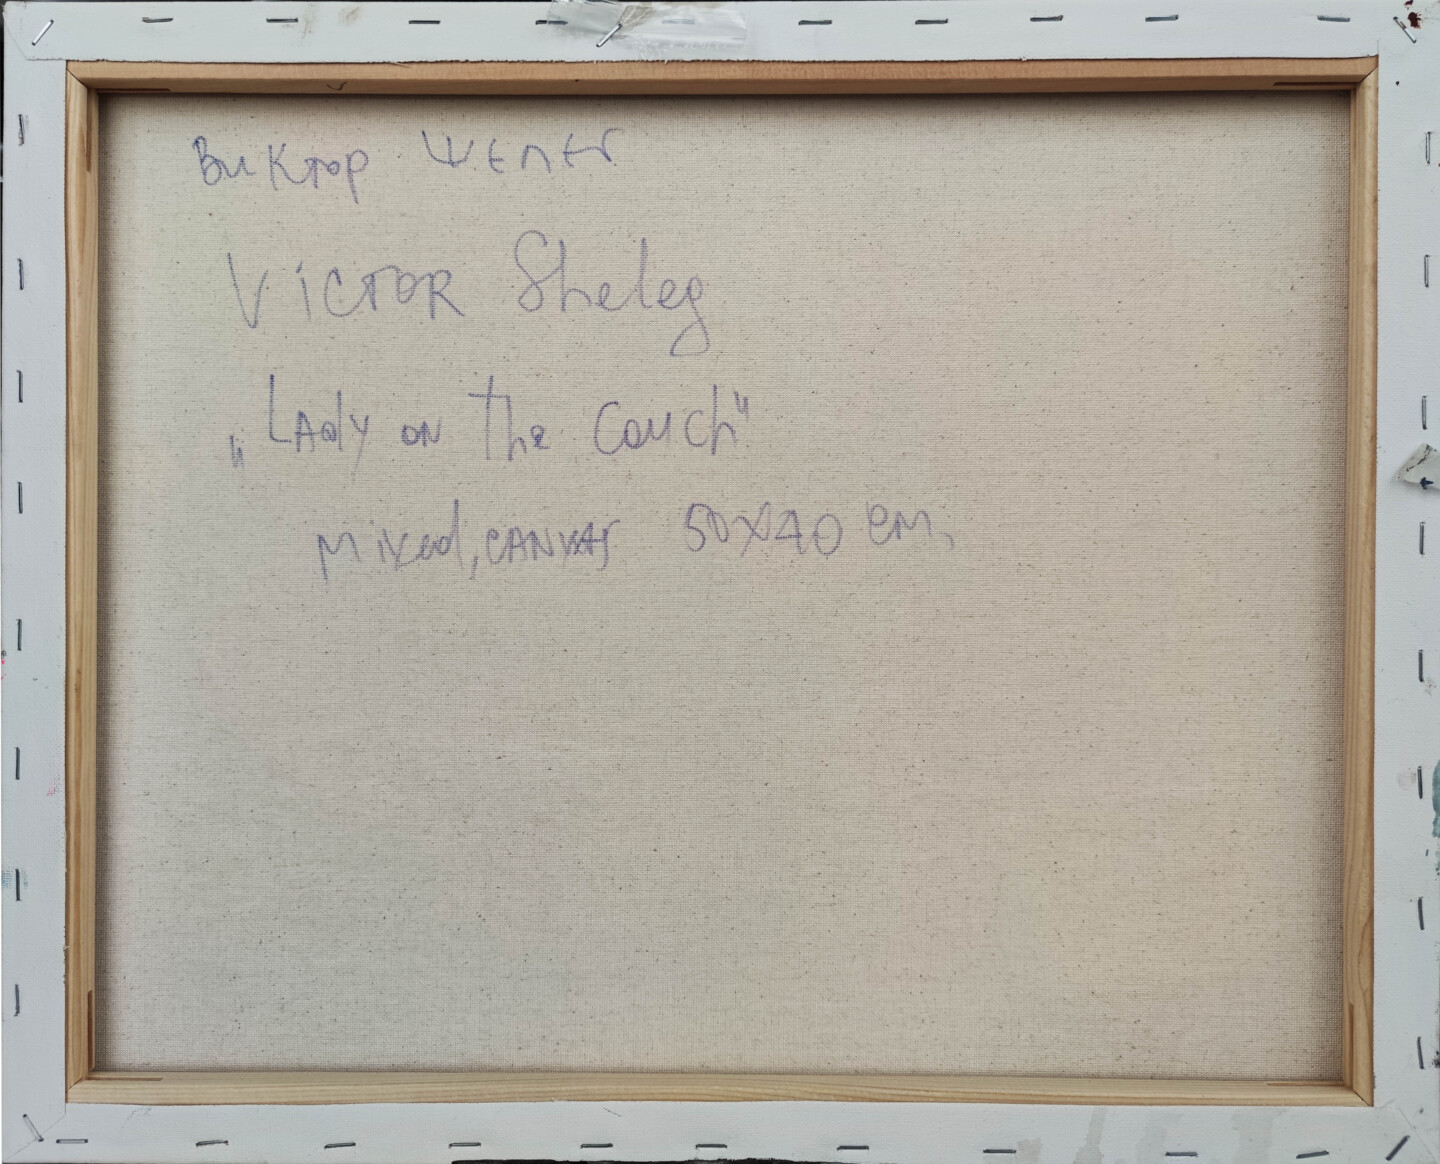 Виктор Шелег
Victor Sheleg
„Lady on the Couch"
Mixed, canvas 50x40 cm,